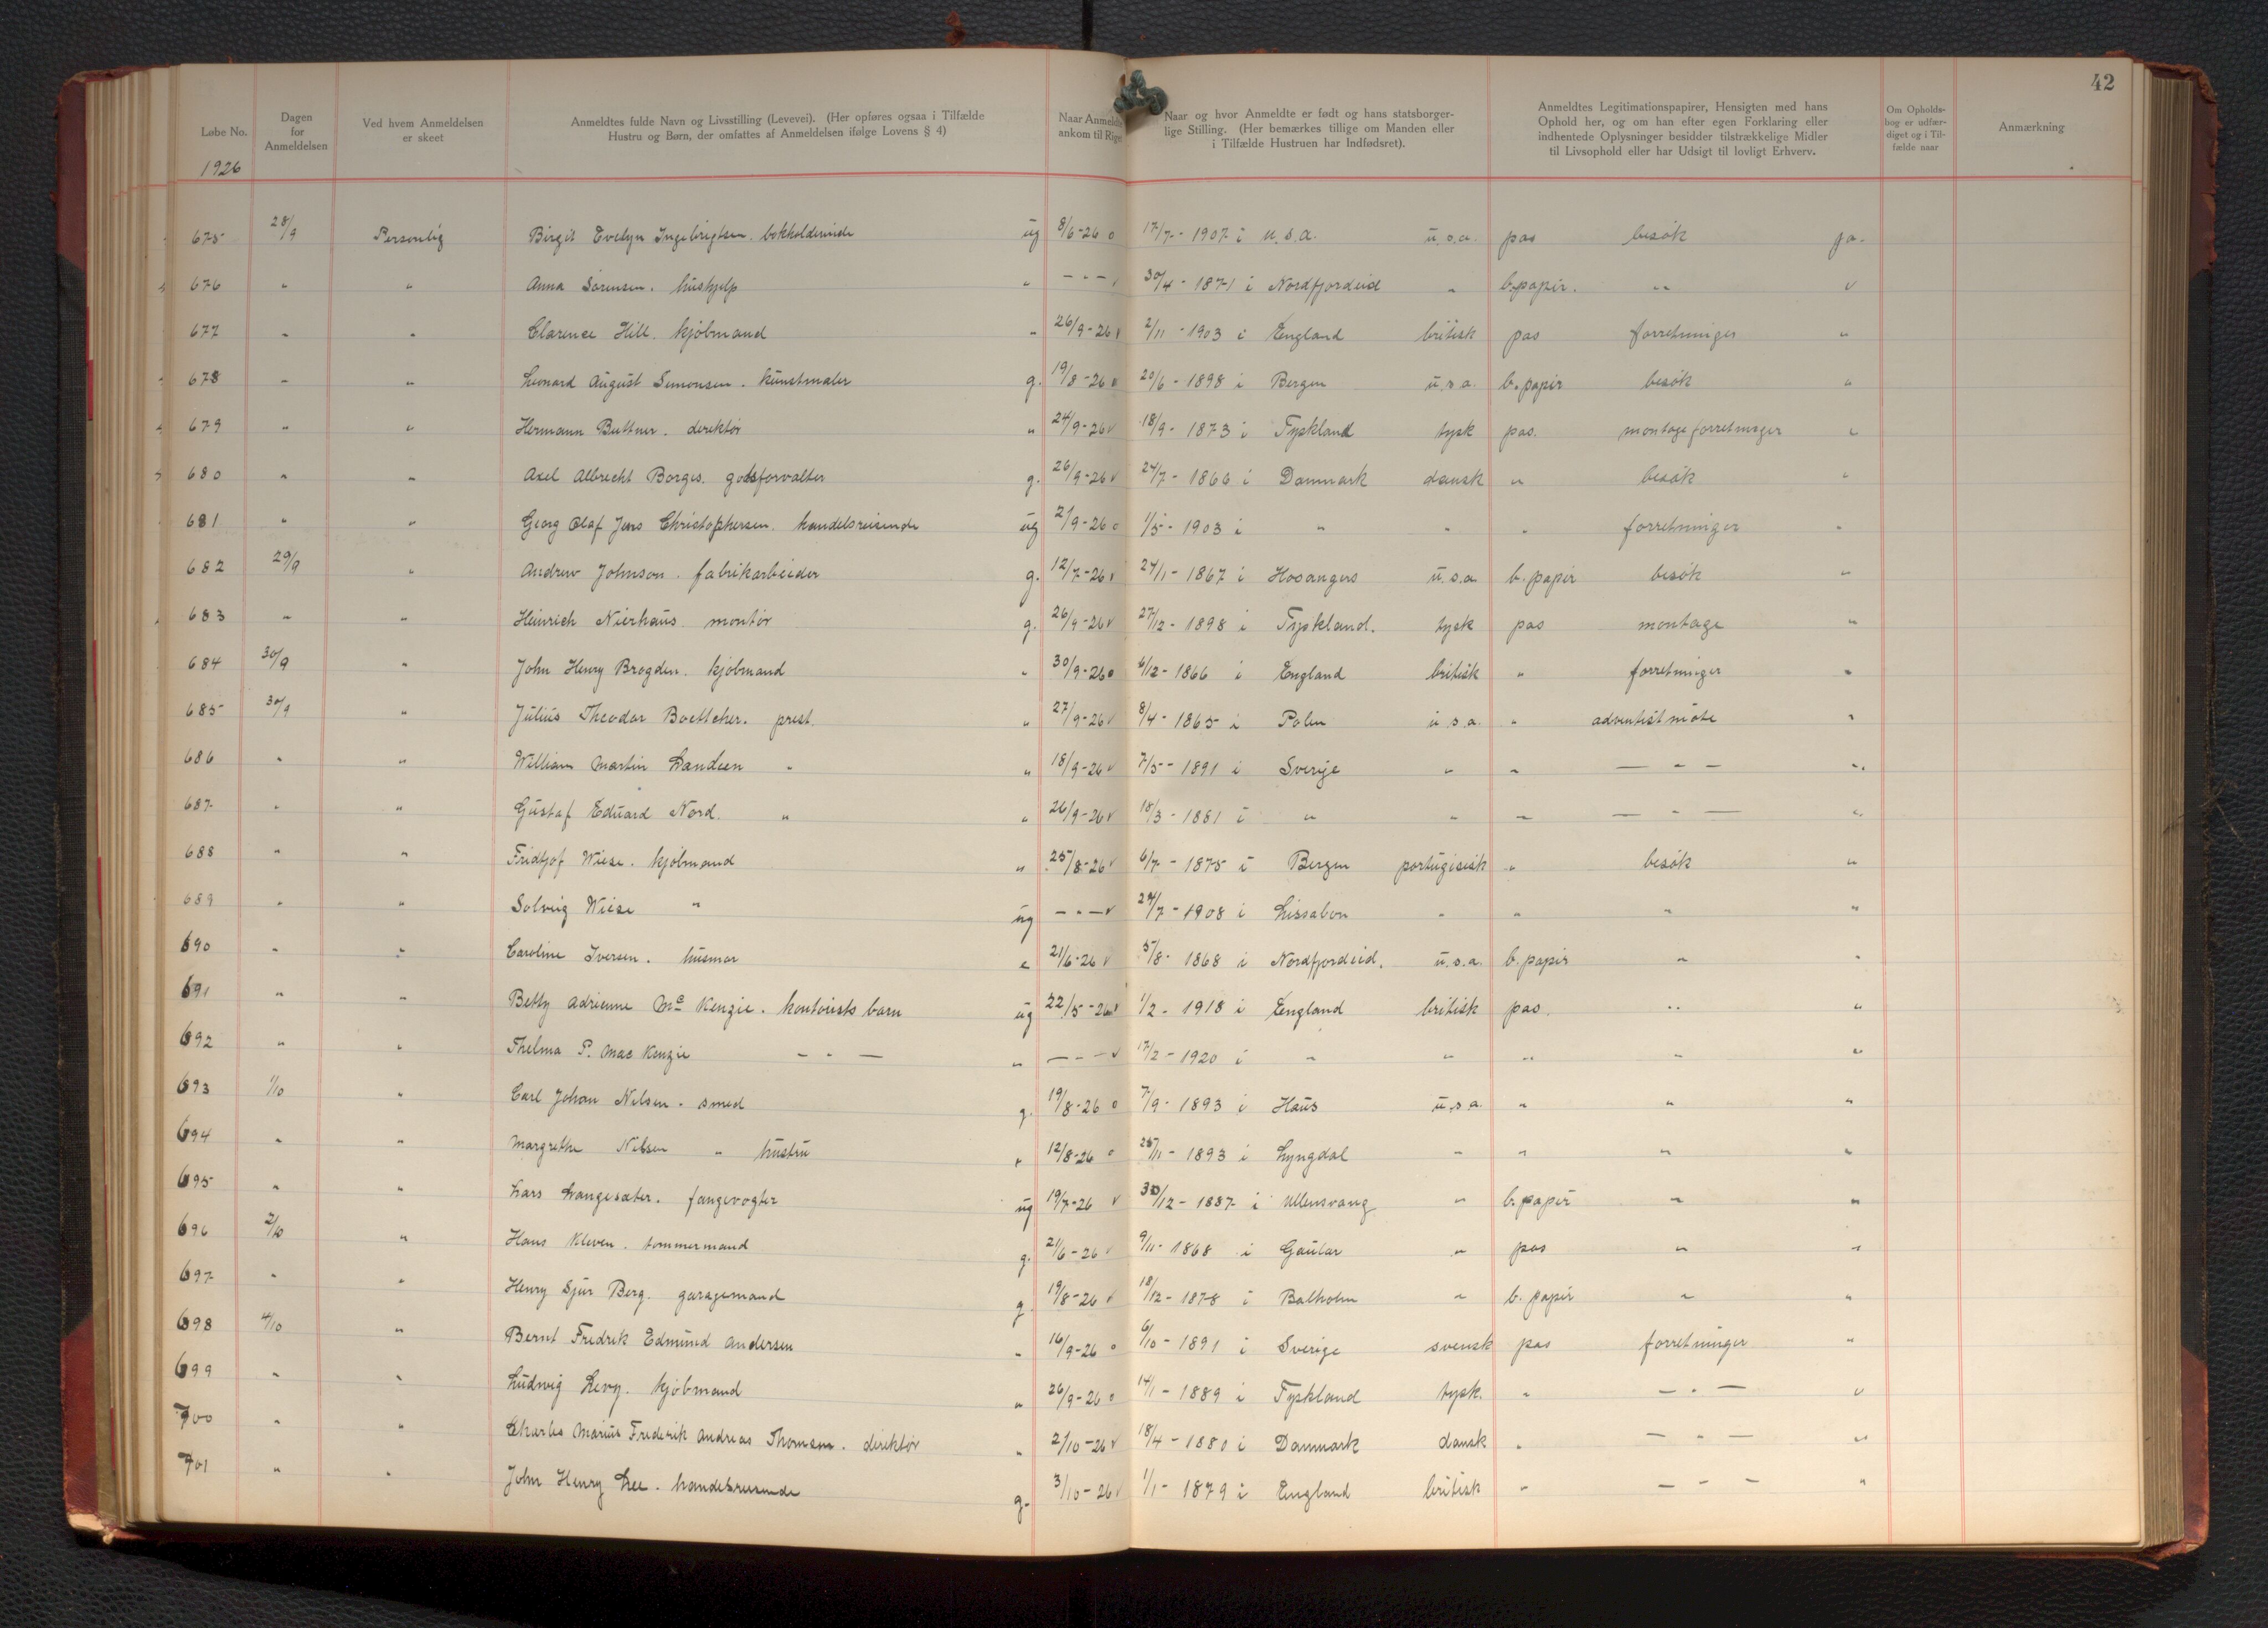 42
Løbe No. | Dagen for Anmeldelsen | Ved hvem Anmeldelsen er skeet | Anmeldtes fulde Navn og Livsstilling (Levevei). (Her opføres ogsaa i Tilfælde Hustru og Børn, der omfattes af Anmeldelsen ifølge Lovens § 4) | Naar Anmeldte ankom til Riget | Naar og hvor Anmeldte er født og hans statsborgerlige Stilling. (Her bemærkes tillige om Manden eller i Tilfælde Hustruen har Indfødsret). | Anmeldtes Legitimationspapirer, Hensigten med hans Ophold her, og om han efter egen Forklaring eller indhentede Oplysninger besidder tilstrækkelige Midler til Livsophold eller har Udsigt til lovligt Erhverv. | Om Opholdsbog er udfærdiget og i Tilfælde naar | Anmærkning
1926
675 28/9 Personlig Birgit Evelyn Ingebrigtsen. bokholderinde ug 8/6-26 o 17/7-1907 i u.s.a. u.s.a. pas besøk ja.
676 " " Anna Sørensen. hushjelp " - " - v 30/4-1871 i Nordfjordeid " b.papir. " v
677 " " Clarence Hill. kjøbmand " 26/9-26 v 2/11-1903 i England britisk pas forretninger "
678 " " Leonard August Simonsen. kunstmaler g. 19/8-26 o 20/6-1898 i Bergen u.s.a. b.papir besøk "
679 " " Hermann Buttner. direktør " 24/9-26 v 18/9-1873 i Tyskland tysk pas. montage forretninger "
680 " " Axel Albrecht Borges. godsforvalter g. 26/9-26 v 24/7-1866 i Danmark dansk " besøk "
681 " " Georg Olaf Jens Christophersen. handelsreisende ug 2/9-26 o 1/5-1903 i " " " forretninger "
682 29/9 " Andrew Johnson. fabrikarbeider g. 12/7-26 v 24/1-1867 i Hosangers u.s.a b.papir besøk "
683 " " Heinrich Nierhaus montør g. 26/9-26 v 27/12-1898 i Tyskland. tysk pas montage "
684 30/9 " John Henry Brogden. kjøbmand " 30/9-26 o 6/12-1866 i England britisk " forretninger "
685 30/9 " Julius Theodor Boettcher. prest. " 27/9-26 v 8/4-1865 i Polen u.s.a. " adventistmøte "
686 " " William Martin Landeen " " 18/9-26 v 7/5-1891 i Sverige " " - " - "
687 " " Gustaf Eduard Nord. " " 26/9-26 v 18/3-1881 i " " " - " - "
688 " " Fridtjof Wiese. kjøbmand " 25/8-26 v 6/7-1875 i Bergen portugisisk " besøk "
689 " " Solveig Wiese " ug - " - v 24/7-1908 i Lissabon " " " "
690 " " Caroline Iversen. husmor e 21/6-26 v 5/8-1868 i Nordfjordeid. u.s.a. b.papir " "
691 " " Betty Adrienne Mc Kenzie. kontorists barn ug 22/5-26 v 1/2-1918 i England britisk pas. " "
692 " " Thelma P. Mac Kenzie - " - " - " - v 17/2-1920 i " " " " "
693 1/10 " Carl Johan Nilsen. smed g. 19/8-26 o 7/9-1893 i Haus u.s.a. " " "
694 " " Margrethe Nilsen " hustru " 12/8-26 o 25/11-1893 i Lyngdal " " " "
695 " " Lars Langesæter. fangevogter ug 19/7-26 v 30/12-1887 i Ullensvang " b.papir " "
696 2/10 " Hans Kleven. tømmermand g. 21/6-26 v 9/11-1868 i Gaular " pas " "
697 " " Henry Sjur Berg. garagemand g. 19/8-26 v 18/12-1878 i Balholm " b.papir " "
698 4/10 " Bernt Fredrik Edmund Andersen " 16/9-26 o 6/10-1891 i Sverige svensk pas forretninger "
699 " " Ludwig Levy. kjøbmand " 26/9-26 o 14/1-1889 i Tyskland tysk. " - " - v
700 " " Charles Marius Frederik Andreas Thomsen. direktør " 2/10-26 v 18/4-1880 i Danmark dansk " - " - "
701 " " John Henry Lee. handelsreisende g. 3/10-26 v 1/1-1879 i England britisk " - " - "